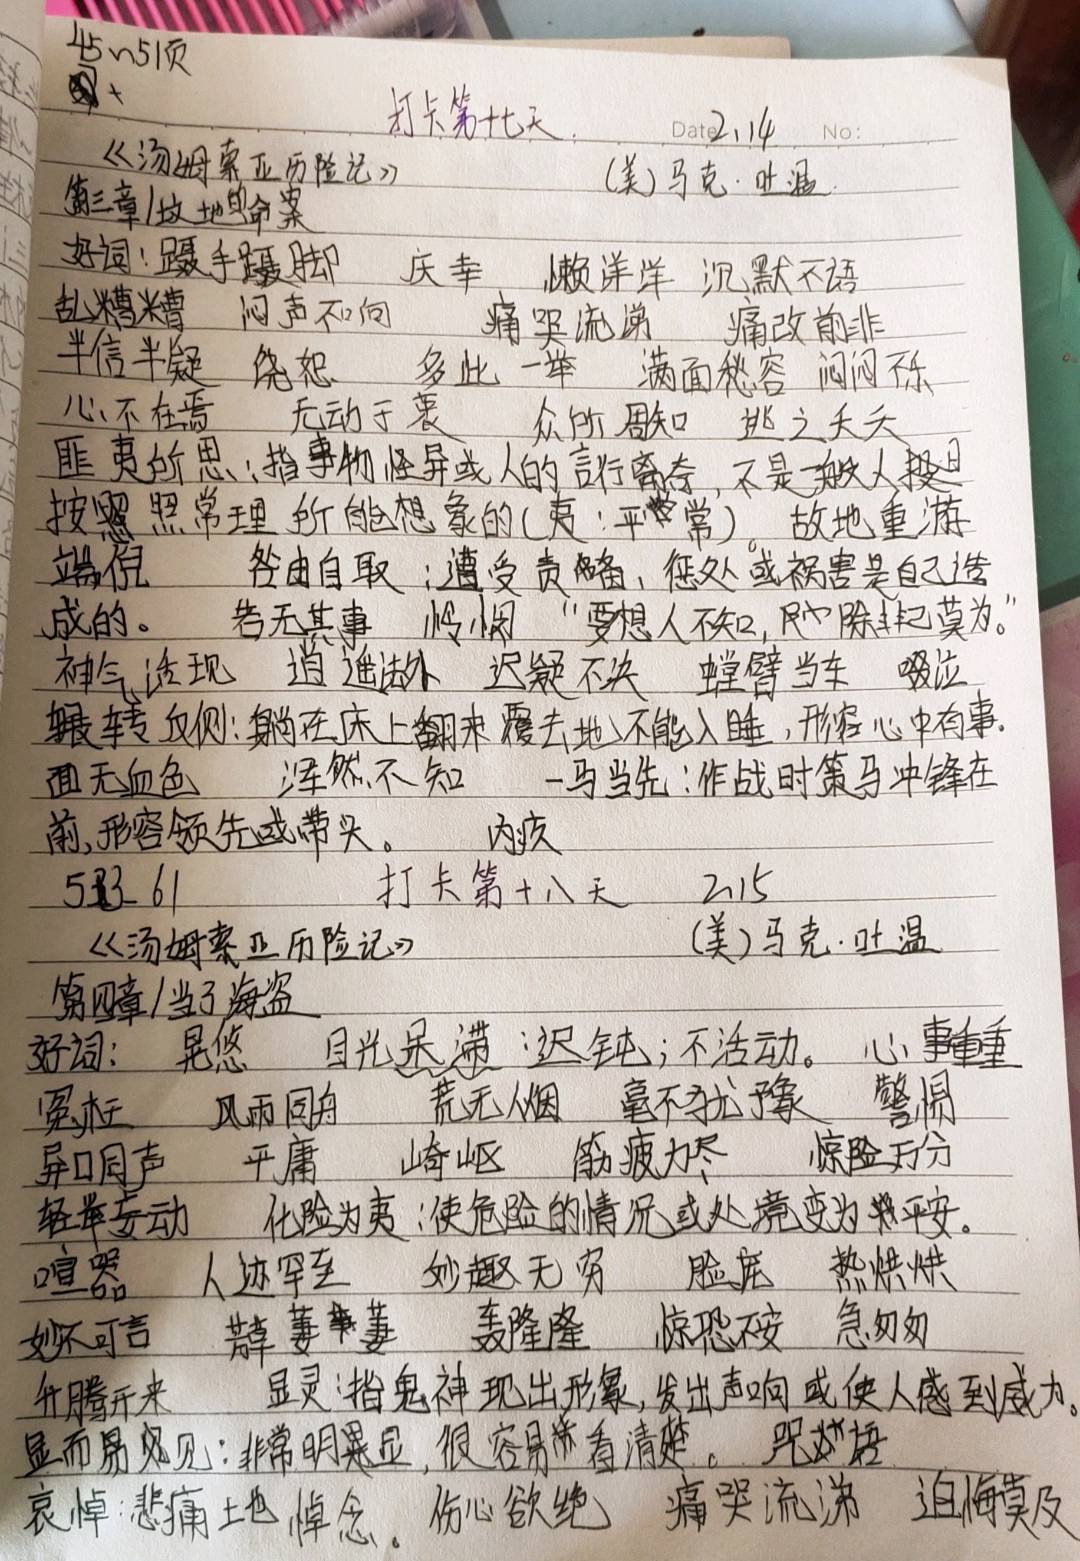 45~51页
打卡第十七天 Date 2.14 No:
《汤姆索亚历险记》 (美)马克·吐温
第三章/坟地的命案
好词:蹑手蹑脚 庆幸 懒洋洋 沉默不语
乱糟糟 闷声不向 痛哭流涕 痛改前非
半信半疑 饶恕 多此一举 满面愁容 闷闷不乐
心不在焉 无动于衷 众所周知 逃之夭夭
匪夷所思:指事物怪异或人的言行离奇,不是一般人
按照常理所能想象的(夷:平常)。 故地重游
端倪 咎由自取:遭受责备、惩处或祸害是自己造
成的。 若无其事 怜悯 “要想人不知,除非己莫为。”
神气活现 逍遥法外 迟疑不决 螳臂当车 啜泣
辗转反侧:躺在床上翻来覆去地不能入睡,形容心中有事.
面无血色 浑然不知 一马当先:作战时策马冲锋在
前,形容领先或带头。 内疚
53-61 打卡第十八天 2.15
《汤姆索亚历险记》 (美)马克·吐温
第四章/当了海盗
好词: 晃悠 目光呆滞:迟钝;不活动。 心事重重
冤枉 风雨同舟 荒无人烟 毫不犹豫 警惕
异口同声 平庸 崎岖 筋疲力尽 惊险万分
轻举妄动 化险为夷:使危险的情况或处境变为平安。
喧嚣 人迹罕至 妙趣无穷 脸庞 热烘烘
妙不可言 萋萋 轰隆隆 惊恐不安 急匆匆
升腾开来 显灵:指鬼神现出形象,发出声响或使人感到威力。
显而易见:非常明显,很容易看清楚。 咒语
哀悼:悲痛地悼念。 伤心欲绝 痛哭流涕 追悔莫及